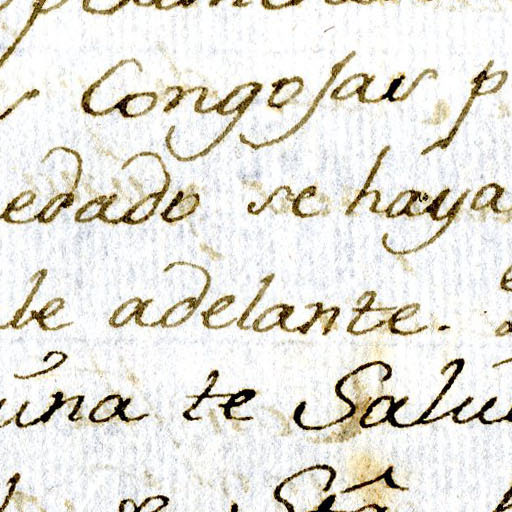 Congojas p
edado se háya
le adelante.
úna te Salú
Stâ